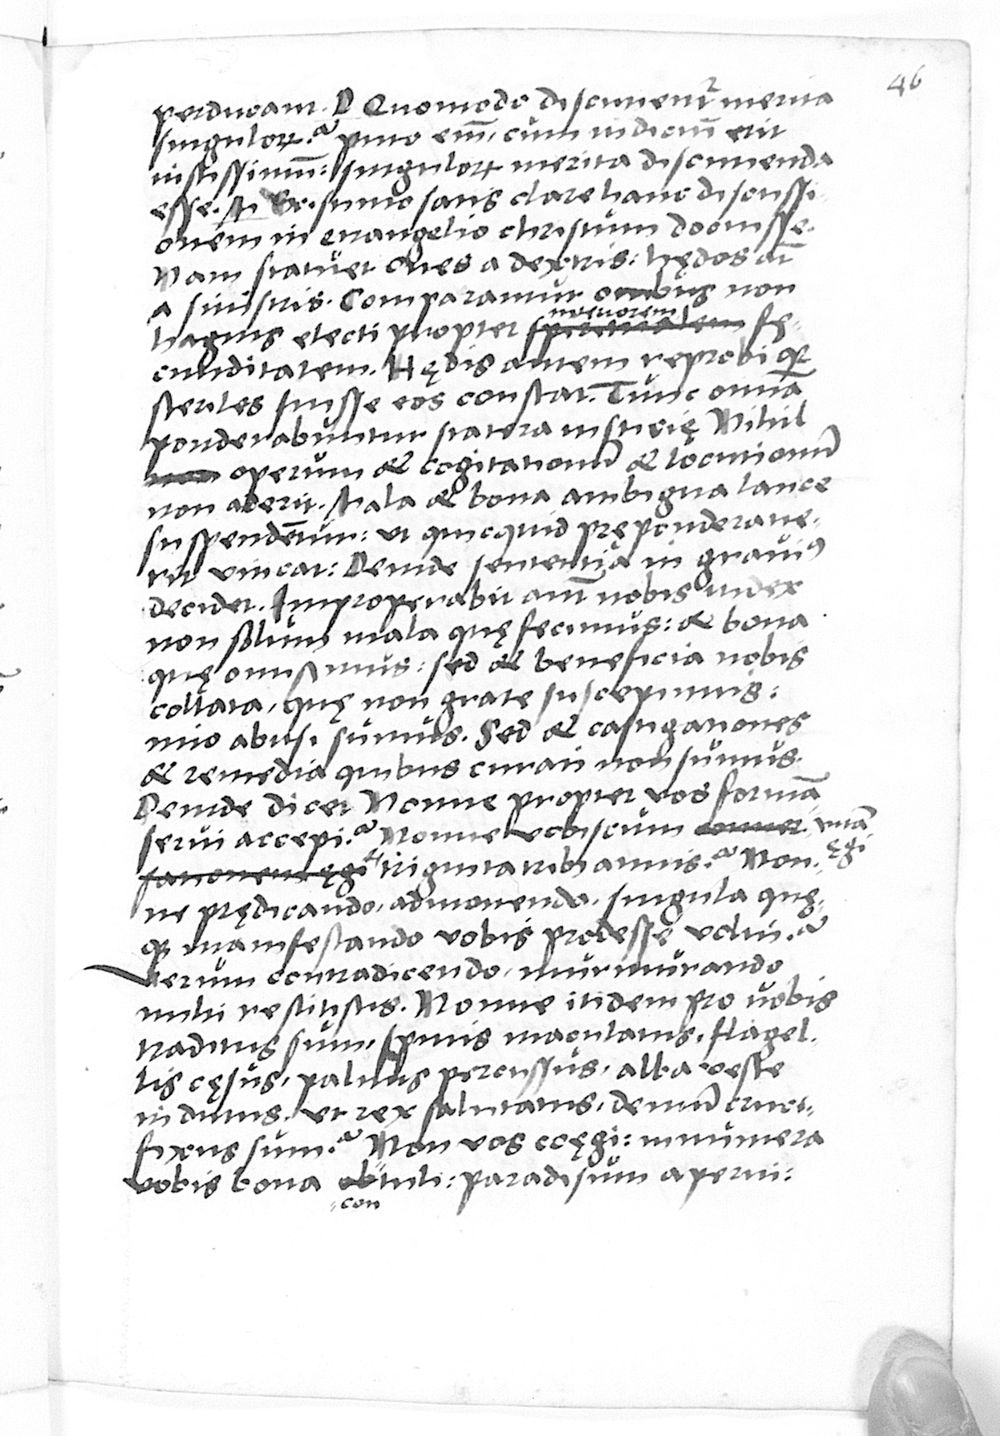 46
perducant. D Quomodo discutientr̄ merita
singulorꝝ? puto em̄, cum iudiciū erit
iustissimū: singulorꝝ merita discutienda
esse. M Existimo satis clare hanc discussi-
onem in euangelio christum docuisse.
Nam statuet oues a dextris: hędos aūt
a sinistris. Comparantur ouibus non
uberiorem
inanis electi propter spiritualem fę-
cunditatem. Hędis autem reprobi qa
steriles fuisse eos constat. Tunc omnia
ponderabuntur statera iustitię Nihil
non operum & cogitationū & locutionū
non aderit. Mala & bona ambigua lance
suspendētur: ut quicquid pręponderaue-
rit vincat: Deinde sententia in grauiꝰ
decidet. Improperabit aūt nobis iudex
non solum mala quę fecimus: & bona
quę omisimus: sed & beneficia nobis
collata, quę non grate suscepimus:
imo abusi sumus. Sed & castigationes
& remedia quibus curati non sumus.
Deinde dicet Nonne propter vos formā
serui accepi? Nonne vobiscum conuer vitā
sationem ęgi triginta tribus annis? Non- ęgi
ne prędicando, admonendo, singula quę-
que manifestando vobis prodesse volui?
Verum contradicendo, murmurando
mihi restitistis. Nonne itidem pro vobis
traditus sum, spinis maculatus, flagel-
lis cęsus, palmis percussus, alba veste
indutus, ut rex salutatus, demū cruci-
fixus sum? Non vos coęgi: innumera
vobis bona obtuli: paradisum aperui:
con